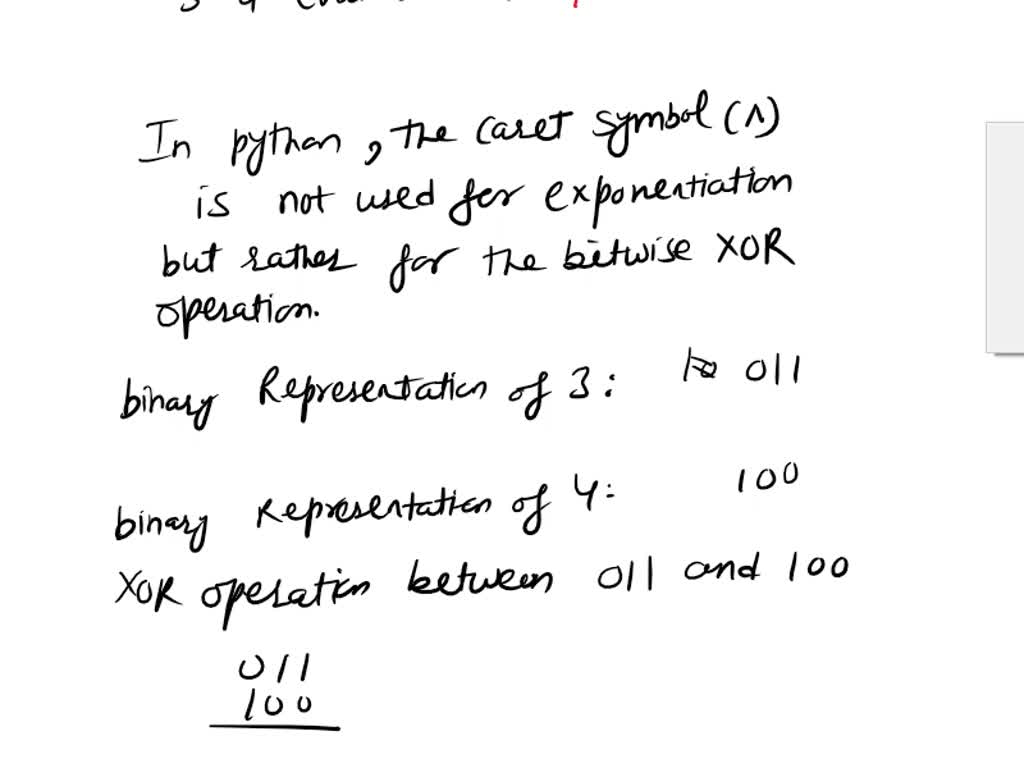 In python, the caret symbol (^)
is not used for exponentiation
but rather for the bitwise XOR
operation.
binary Representation of 3: 011
binary Representation of 4: 100
XOR operation between 011 and 100
011
100